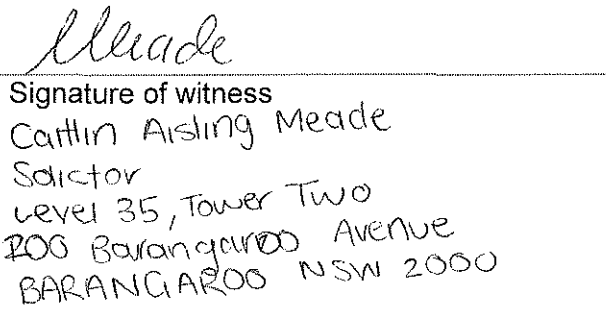 Meade
Signature of witness
Caitlin Aisling Meade
Solictor
Level 35, Tower Two
200 Barangaroo Avenue
BARANGAROO NSW 2000